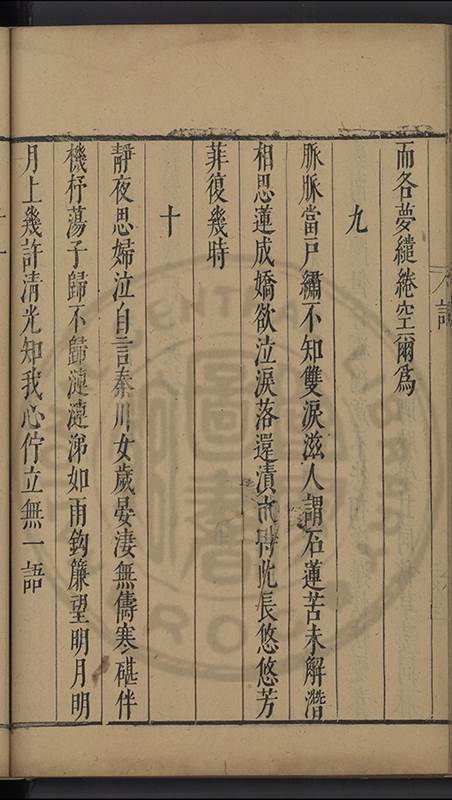 而各夢繾綣空爾為
九
脈脈當戸繡不知雙淚滋人謂石蓮苦未解潛
相思蓮成嬌欲泣淚落還漬 此長悠悠芳
菲復幾時
十
靜夜思婦泣自言秦川女歲晏淒無儔寒碪伴
機杼蕩子歸不歸漣漣涕如雨鈎簾望明月明
月上幾許清光知我心佇立無一語